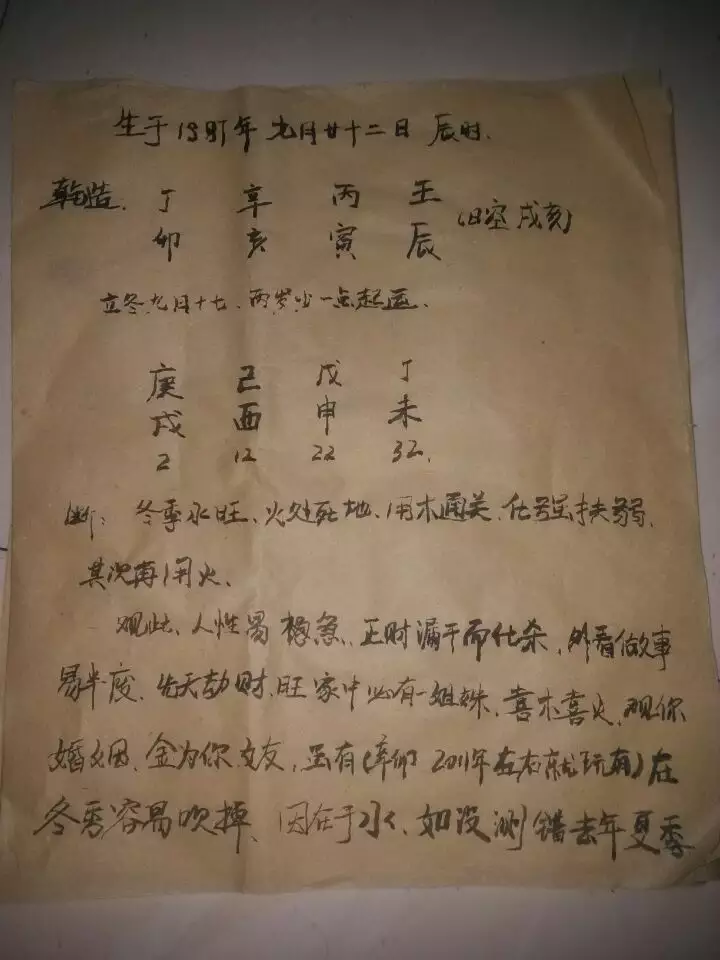 生于1987年九月廿十二日 辰时.
乾造. 丁 辛 丙 壬
卯 亥 寅 辰 (日空戌亥)
立冬九月十七、两岁少一点起运.
庚 己 戊 丁
戌 酉 申 未
2 12 22 32.
断: 冬季水旺、火处死地、用木通关、化强扶弱.
其次再用火.
观此、人性易极急、正财漏干而化杀、外看做事
易半废、先天劫财.旺家中必有一姐妹、喜木喜火、观你
婚姻、金为你女友、至有(辛卯 2011年左右就玩有)在
冬季容易吹掉、因在于水、如没测错去年夏季